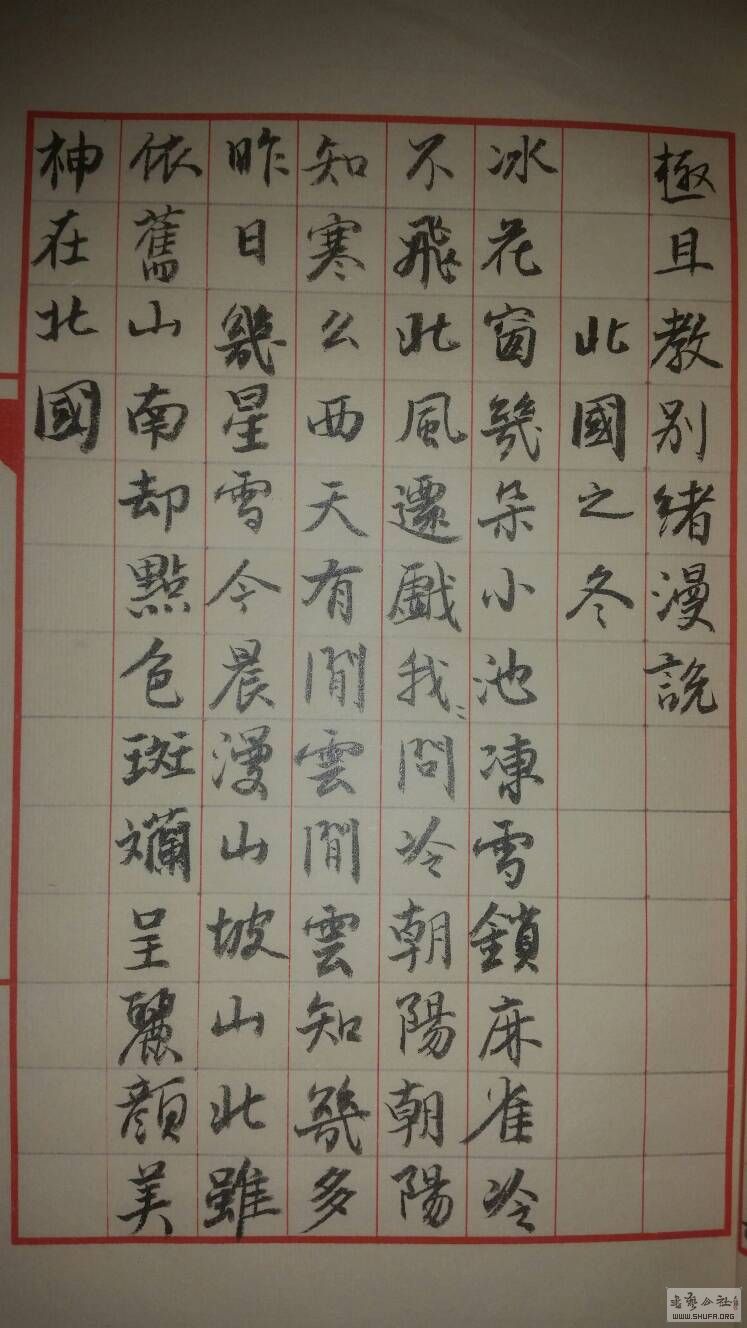 極且教別緒漫說
北國之冬
冰花窗幾朵小池凍雪鎖麻雀冷
不飛北風還戲我〻問冷朝陽朝陽
知寒么西天有閒雲閒雲知幾多
昨日幾星雪今晨漫山坡山北雖
依舊山南却點色斑斕呈麗顏美
神在北國
书艺公社
WWW.SHUFA.ORG